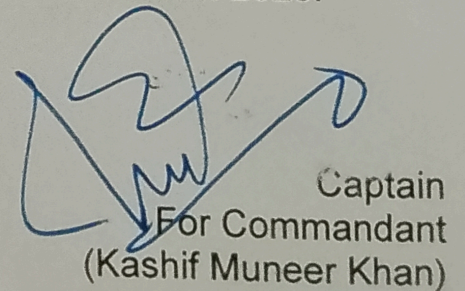 Captain
For Commandant
(Kashif Muneer Khan)